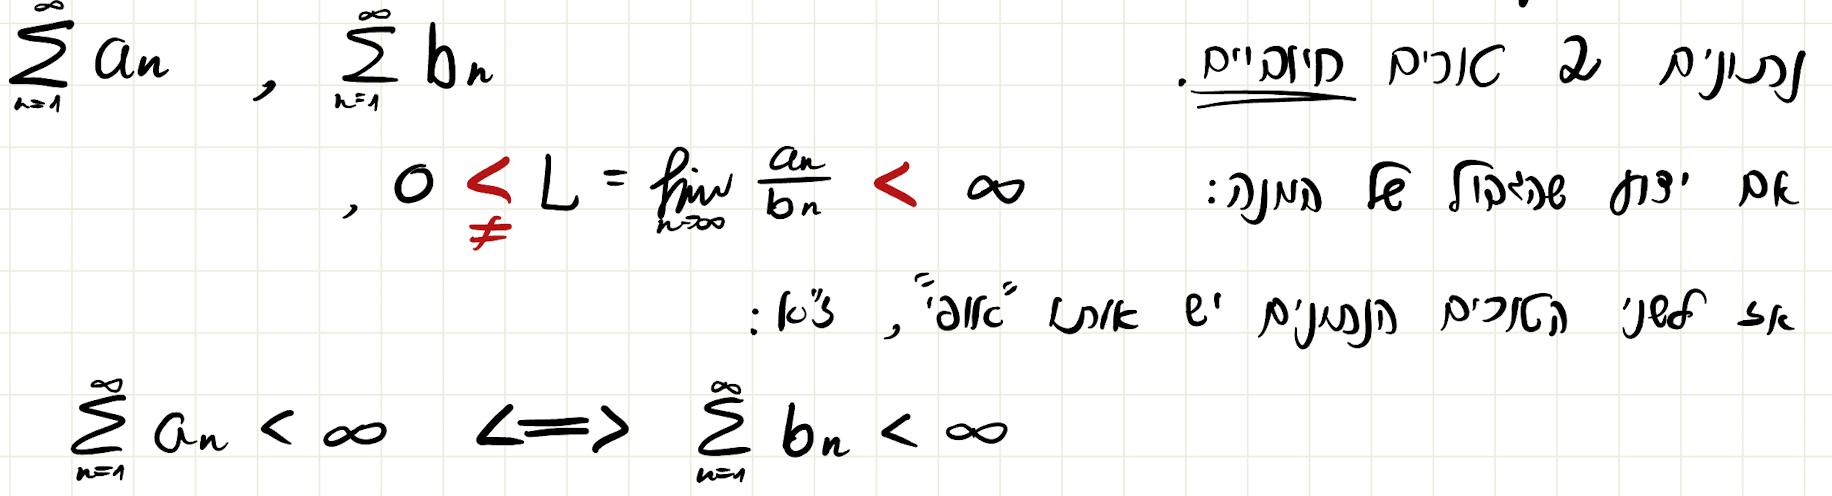 נתונים 2 טורים חיוביים. $\sum_{n=1}^{\infty} a_n$ , $\sum_{n=1}^{\infty} b_n$
אם ידוע שהגבול של המנה: $0 \underset{\neq}{<} L = \lim_{n\to\infty} \frac{a_n}{b_n} < \infty$ ,
אז לשני הטורים הנתונים יש אותו "אופי", ז"א:
$\sum_{n=1}^{\infty} a_n < \infty \iff \sum_{n=1}^{\infty} b_n < \infty$